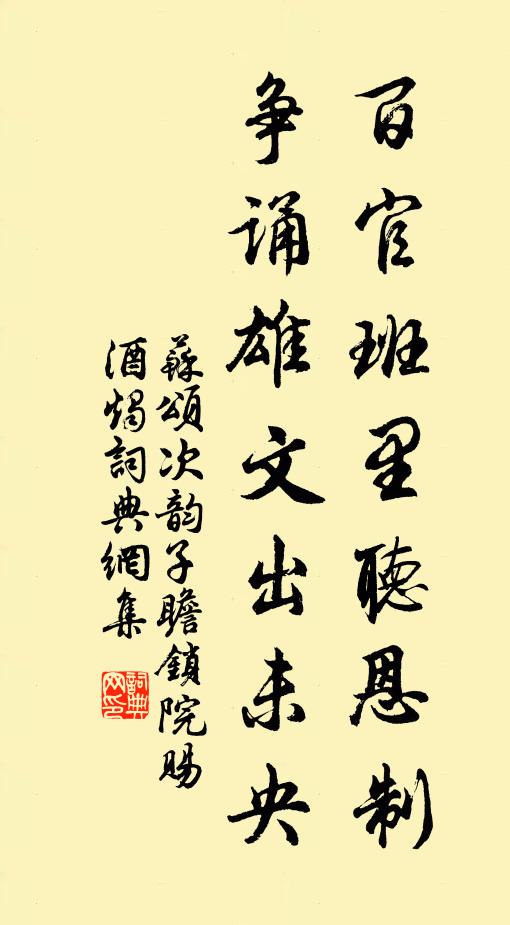 百官班里聽恩制
争誦雄文出未央
蘇頌次韵子瞻鎖院賜
酒燭詞典網集
詞典网印